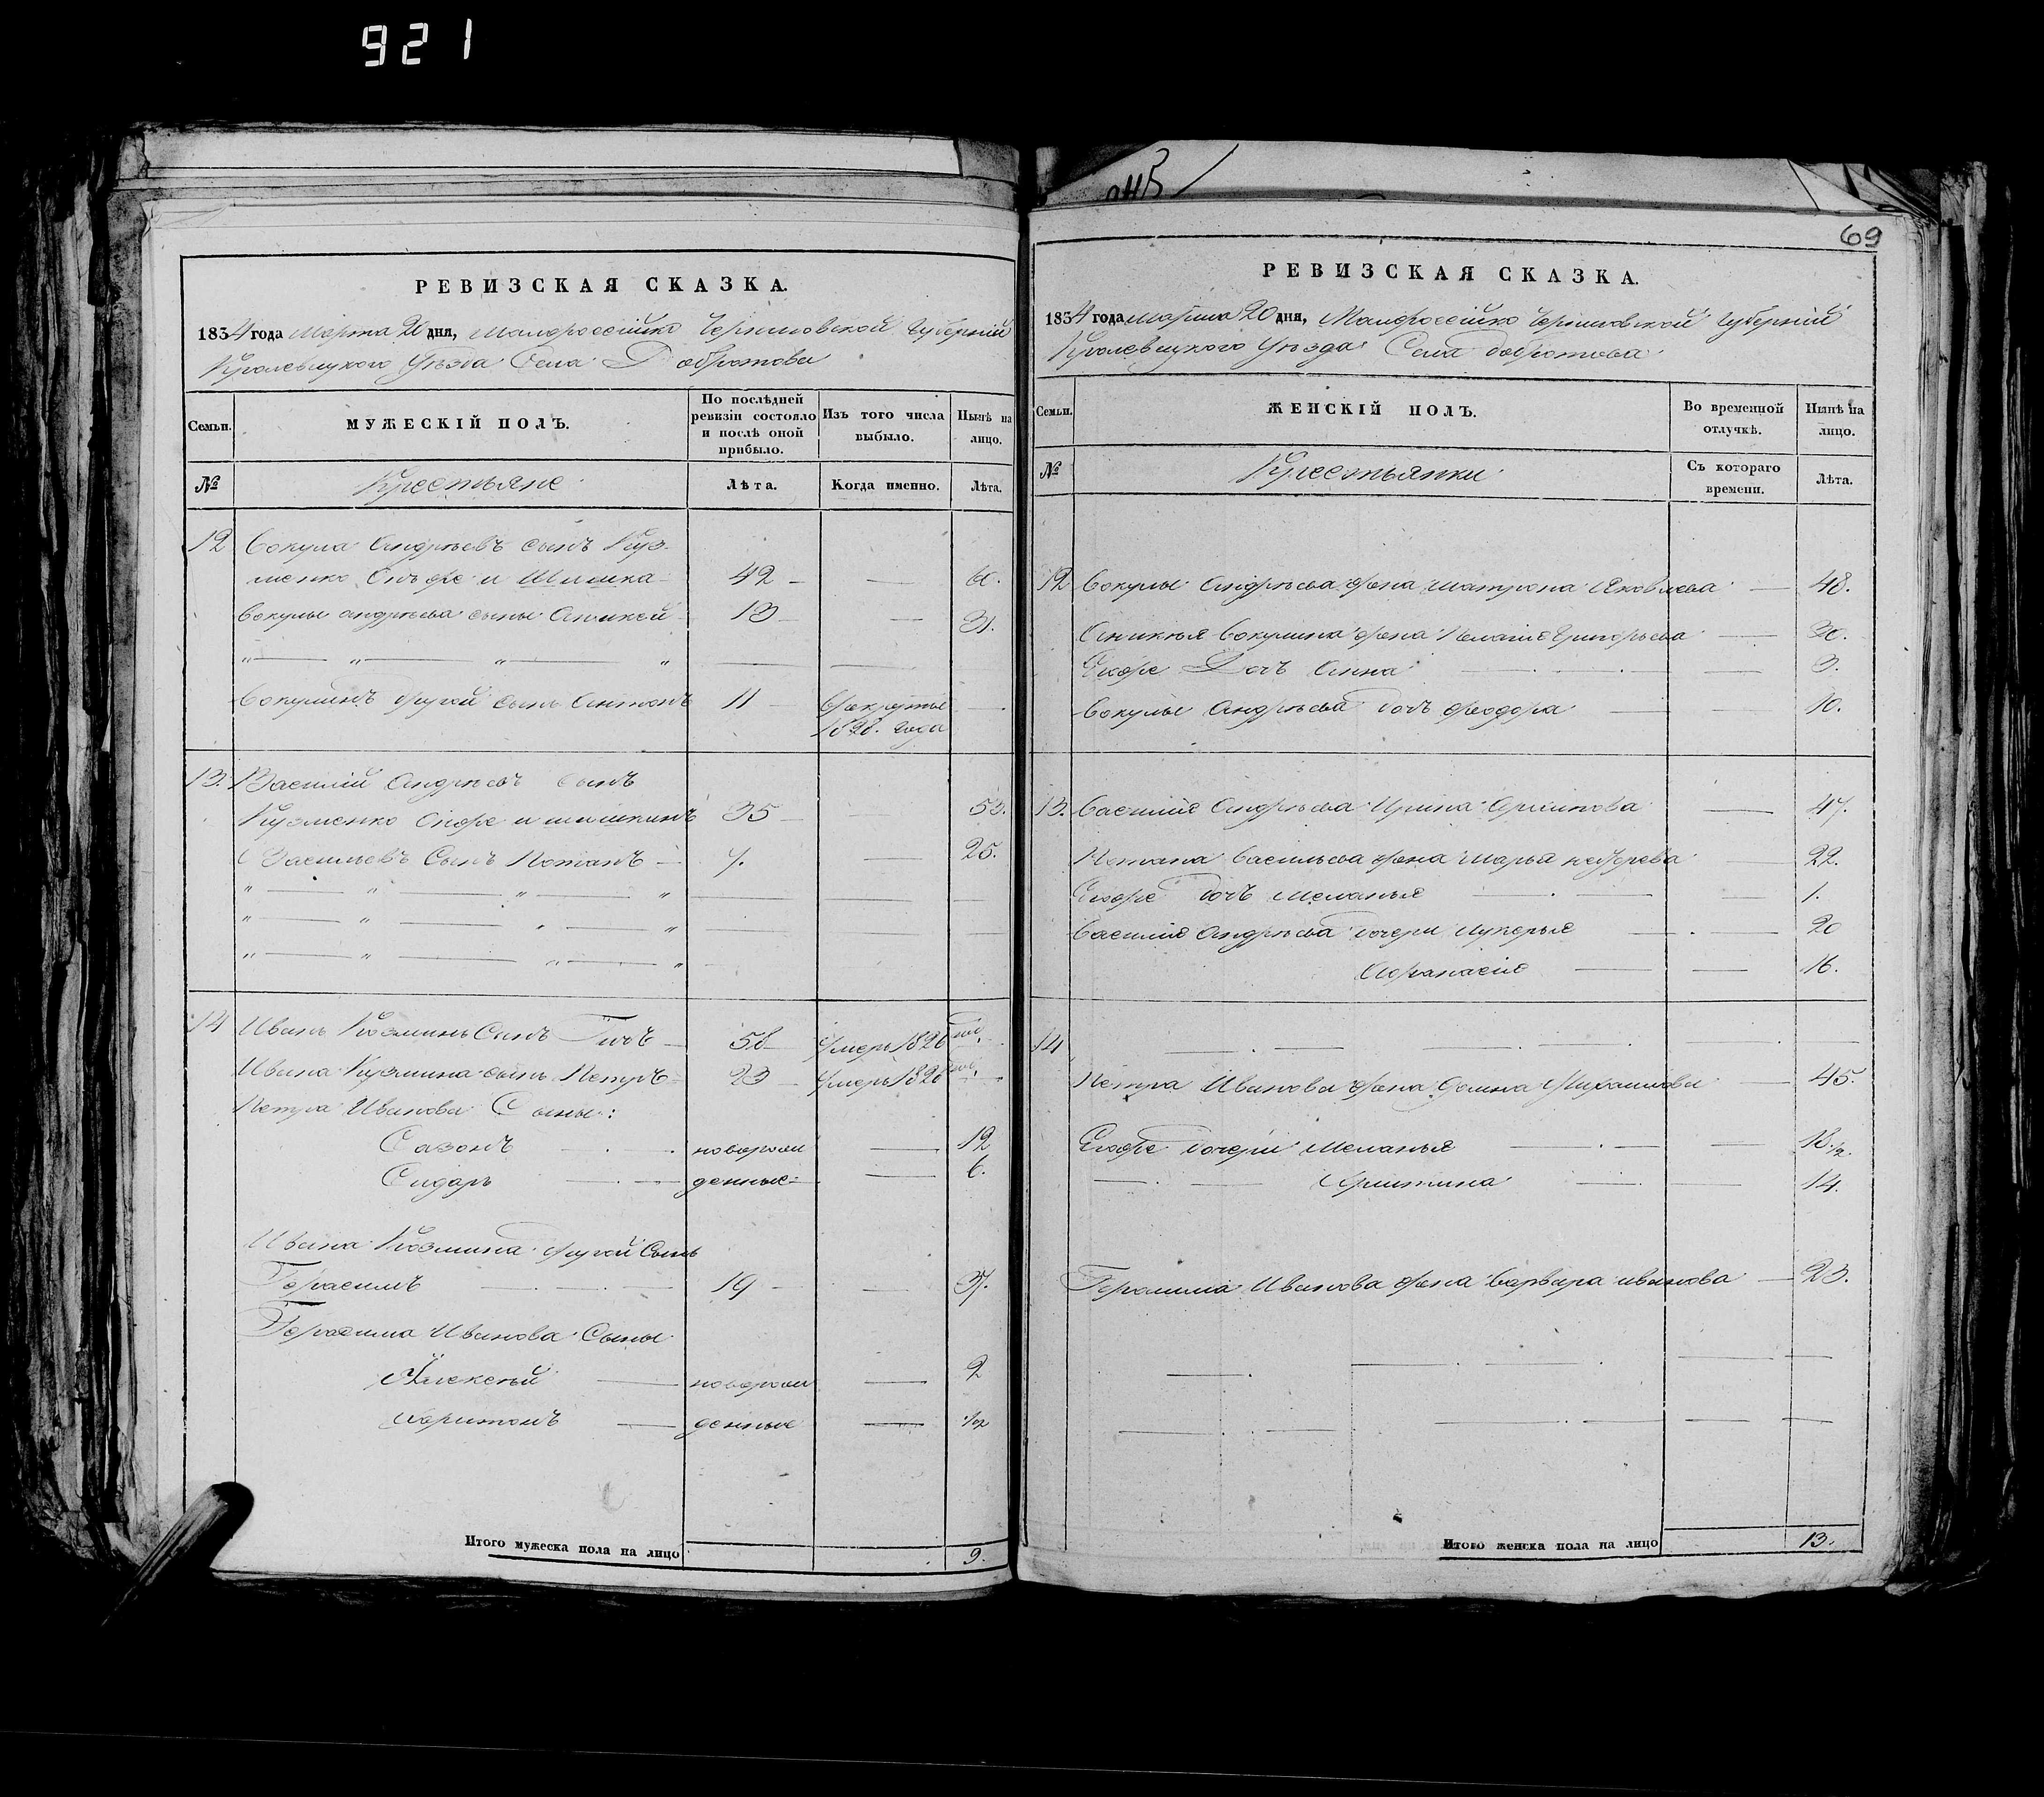 921
045
РЕВИЗСКАЯ СКАЗКА.
1834 года Марта 20 дня, Малороссійско Черниговской Губерніи
Кролевицкого Уѣзда Села Добротова
Семьи.
МУЖЕСКІЙ ПОЛЪ.
По послѣдней ревизіи состояло и послѣ оной прибыло.
Изъ того числа выбыло.
Нынѣ на лицо.
№
Крестьяне
Лѣта.
Когда именно.
Лѣта.
12 Вокула Андрѣевъ сынъ Куз-
менко Онъ же и Шишка 42 — 60.
Вокулы андрѣева сыны Аникей 13 — 31.
Вокулинъ другой сынъ Антонъ 11
Врекруты
1828. года
13. Василій Андрѣевъ сынъ
Кузменко Онже и шишкинъ 35 — 53.
Васильевъ Сынъ Потапъ — 7. — 25.
14 Иванъ Козминъ Сынъ 58 умеръ 1826 год.
Ивана Кузмина сынъ Петръ 23 умеръ 1826 год.
Петра Иванова Сыны:
Сазонъ новорож — 12
Сидоръ денные — 6.
Ивана Козмина другой Сынъ
Герасимъ 19 — 37.
Герасима Иванова Сыны
Алексѣй — новорож — 2
Харитонъ — денные — 1/2
Итого мужеска пола на лицо 9.
69
РЕВИЗСКАЯ СКАЗКА.
1834 года марта 20 дня, Малороссійско Черниговской Губерніи
Кролевицкого Уѣзда Села Добротова
Семьи.
ЖЕНСКІЙ ПОЛЪ.
Во временной отлучкѣ.
Нынѣ на лицо.
№
Крестьянки
Съ котораго времени.
Лѣта.
12 Вокулы Андрѣева жена Матрона Яковлева — 48.
Аникѣя Вокулина жена Пелагія Григорьева — 30.
Ихже Дочъ Анна — 3.
Вокулы Андрѣева дочъ Феодора — 10.
13. Василія Андрѣева Ирина — 47.
Потапа Васильева жена Марья — 22.
Ихже дочъ Меланья — 1.
Василія Андрѣева дочери Лукерья — 20
Афанасія — 16.
14
Петра Иванова жена Михайлова — 45.
Ихже дочери Меланья — 18.1/2.
Христина — 14.
Герасима Иванова жена Варвара иванова — 23.
Итого женска пола на лицо 13.